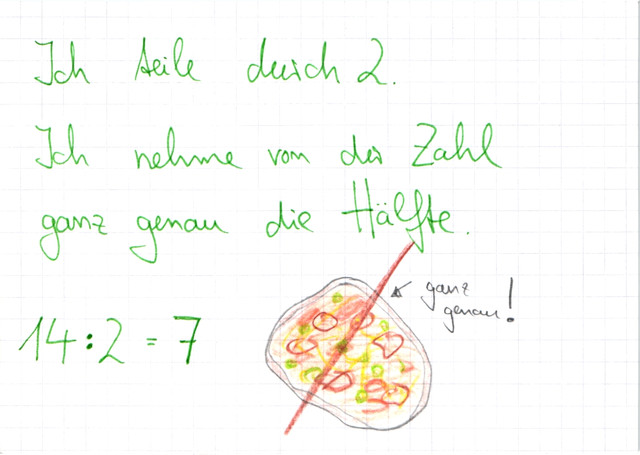 Ich teile durch 2.
Ich nehme von der Zahl
ganz genau die Hälfte.
ganz
genau!
14:2=7